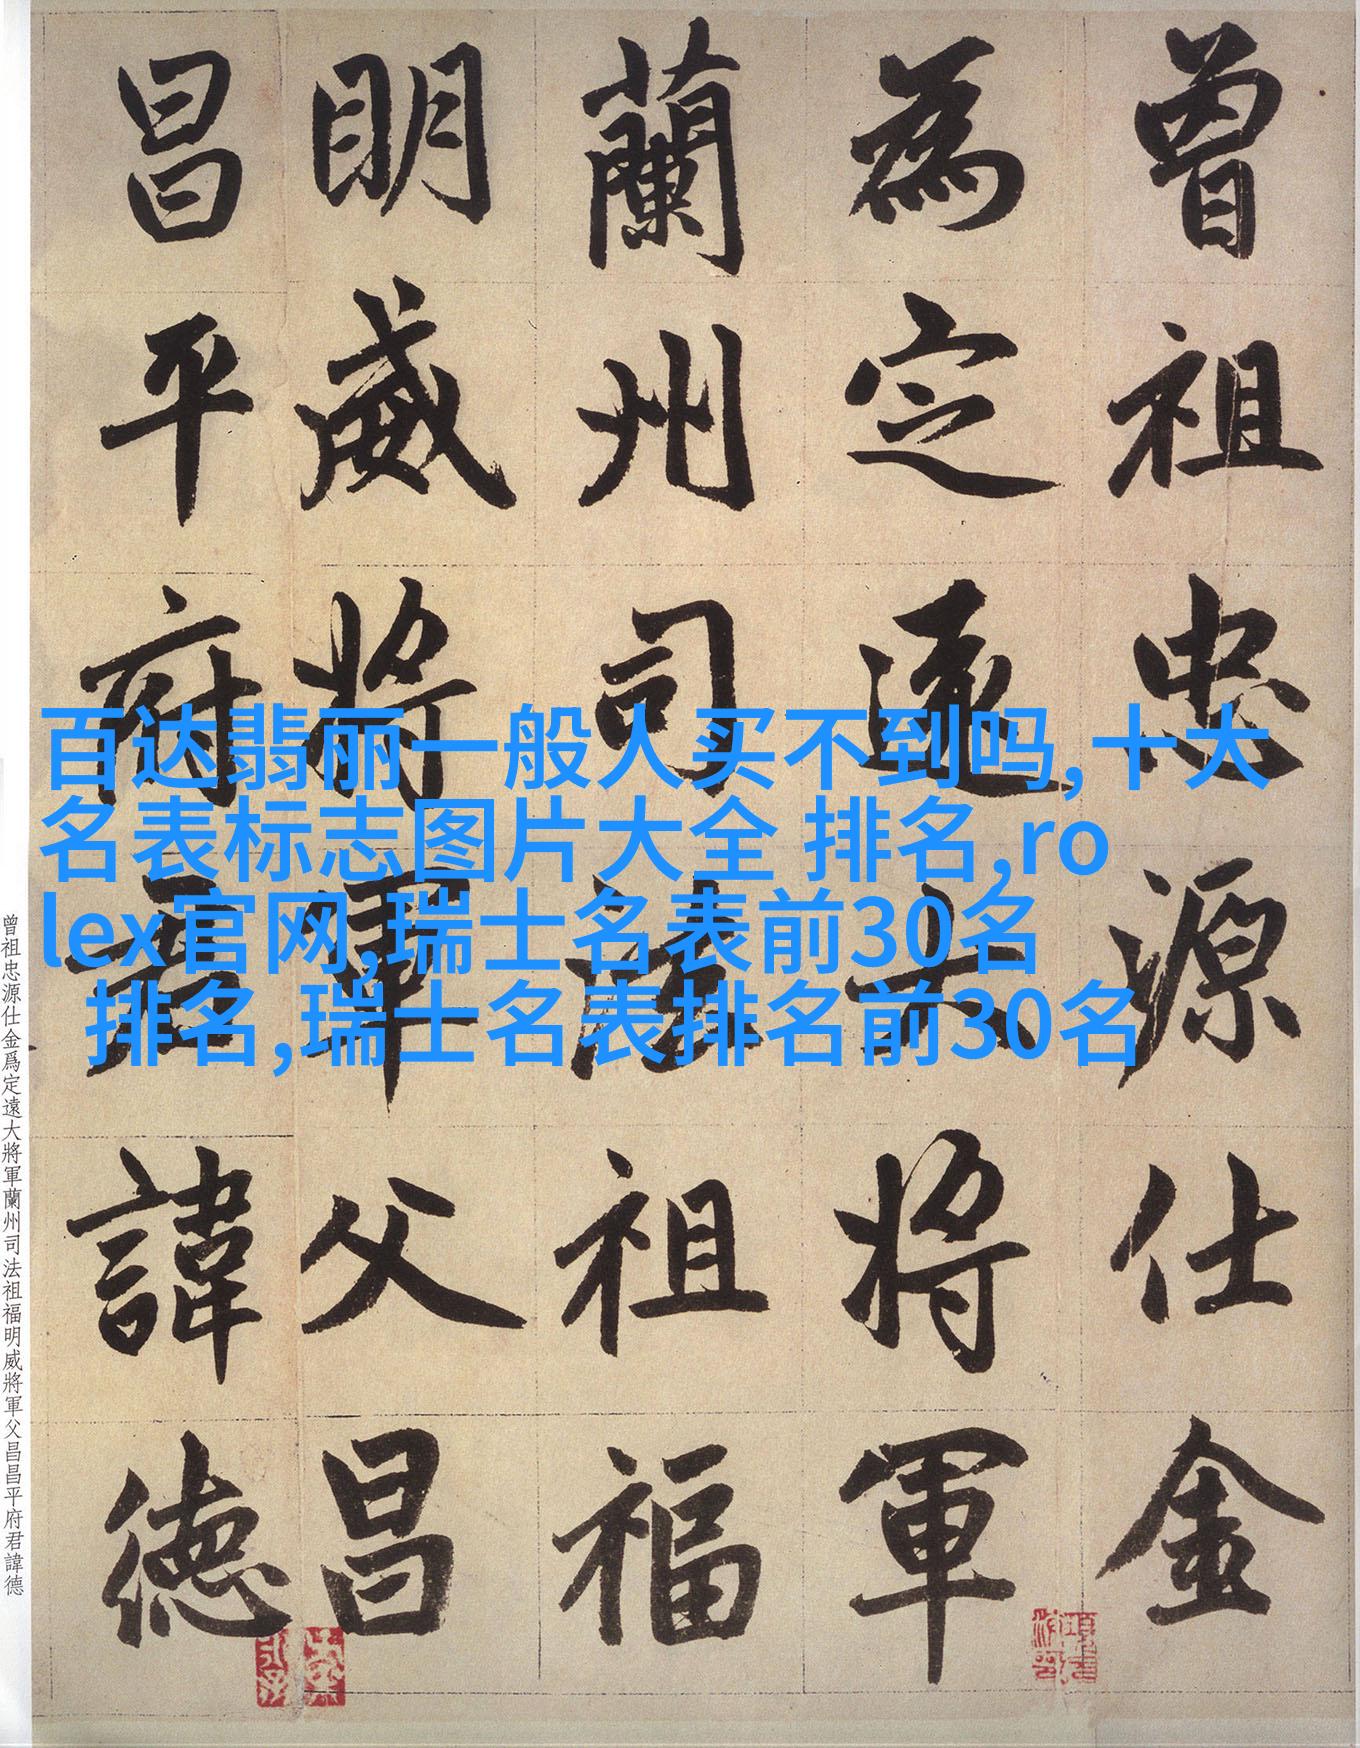 曾祖忠源仕金
為定遠大將軍
蘭州司法祖福
明威將軍父昌
昌平府君諱德
百达翡丽一般人买不到吗,十大
名表标志图片大全 排名,ro
lex官网,瑞士名表前30名
排名,瑞士名表排名前30名
曾祖忠源仕金爲定遠大將軍蘭州司法祖福明威將軍父昌昌平府君諱德